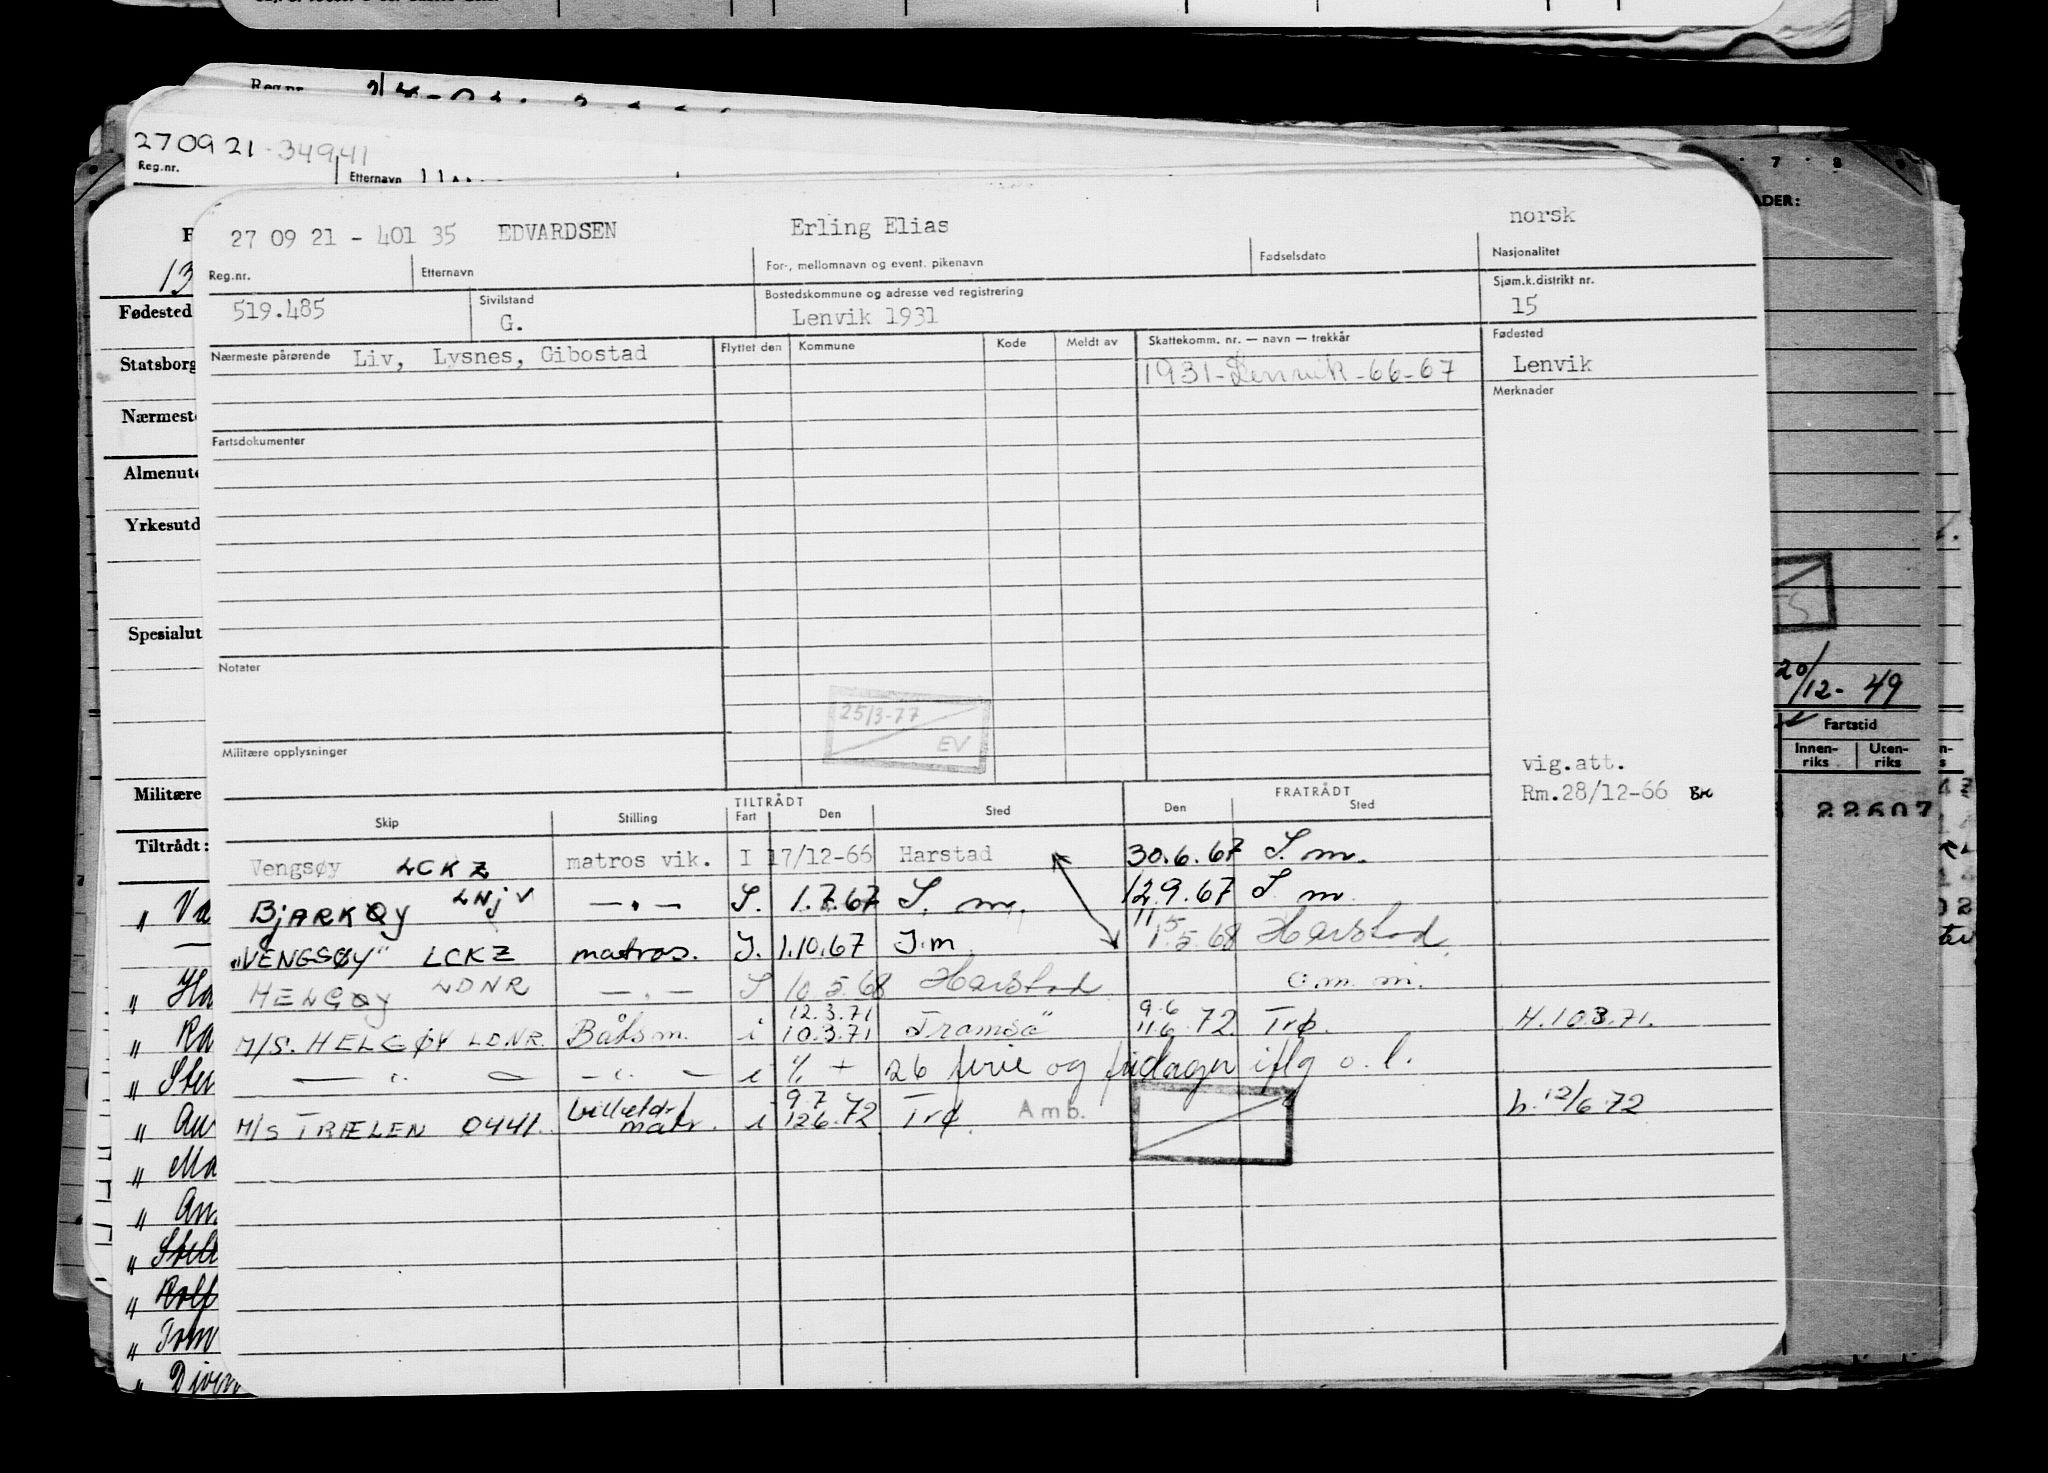 Reg.nr.
27 09 21 - 34941
Reg.nr.
Etternavn
ADER:
27 09 21 - 401 35 EDVARDSEN Erling Elias norsk
Reg.nr. Etternavn For-, mellomnavn og event. pikenavn Fødselsdato Nasjonalitet
519.485 Sivilstand G. Bostedskommune og adresse ved registrering Lenvik 1931 Sjøm.k.distrikt nr. 15
Nærmeste pårørende Liv, Lysnes, Gibostad Flyttet den Kommune Kode Meldt av Skattekomm. nr. — navn — trekkår Fødested
1931-Lenvik-66-67 Lenvik
Merknader
Fartsdokumenter
Notater
25/3-77
EV
Militære opplysninger
vig.att.
Rm.28/12-66
TILTRÅDT FRATRÅDT
Skip Stilling Fart Den Sted Den Sted
Vengsøy LCKZ matros vik. I 17/12-66 Harstad 30.6.67 S. m.
BJARKØY LNJV —"— S. 1.7.67 S. m. 12.9.67 S m
"VENGSØY" LCKZ matros. I. 1.10.67 I.m 5.68 Harstad
HELGØY LDNR —"— S 10.5.68 Harstad
12.3.71 9.6
M/S. HELGØY LDNR. Båtsm. i 10.3.71 Tromsø 11.6.72 Trø. H.10.3.71.
—"— —"— i % + 26 ferie og fridager iflg o. l.
9.7
M/S TRÆLEN O441. matr. i 12.6.72 Trø Amb. h. 12/6 72
13
Fødested
Statsborg
Nærmest
Almenut
Yrkesutd
Spesialut
Militære
Tiltrådt:
20/12-49
Fartstid
Innen-riks Uten-riks
22607